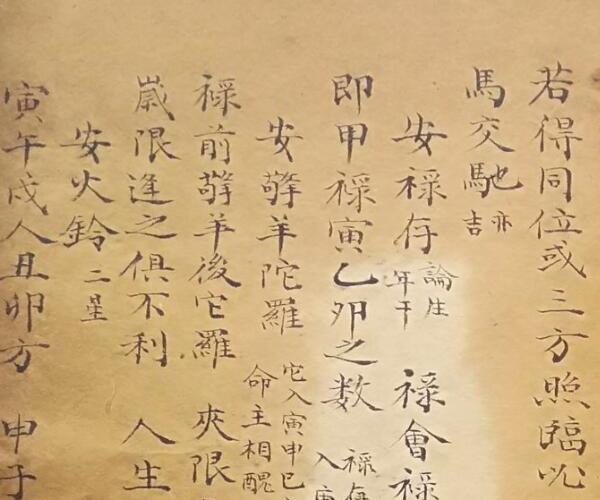 若得同位或三方照臨必
馬交馳亦吉
安祿存論生年干 祿會祿
即甲祿寅乙夘之数 祿存入
安擎羊陀羅 它入寅申巳命主相醜
祿前擎羊後它羅 夾限
歲限逢之俱不利 人生
安火鈴二星
寅午戌人丑卯方 申子